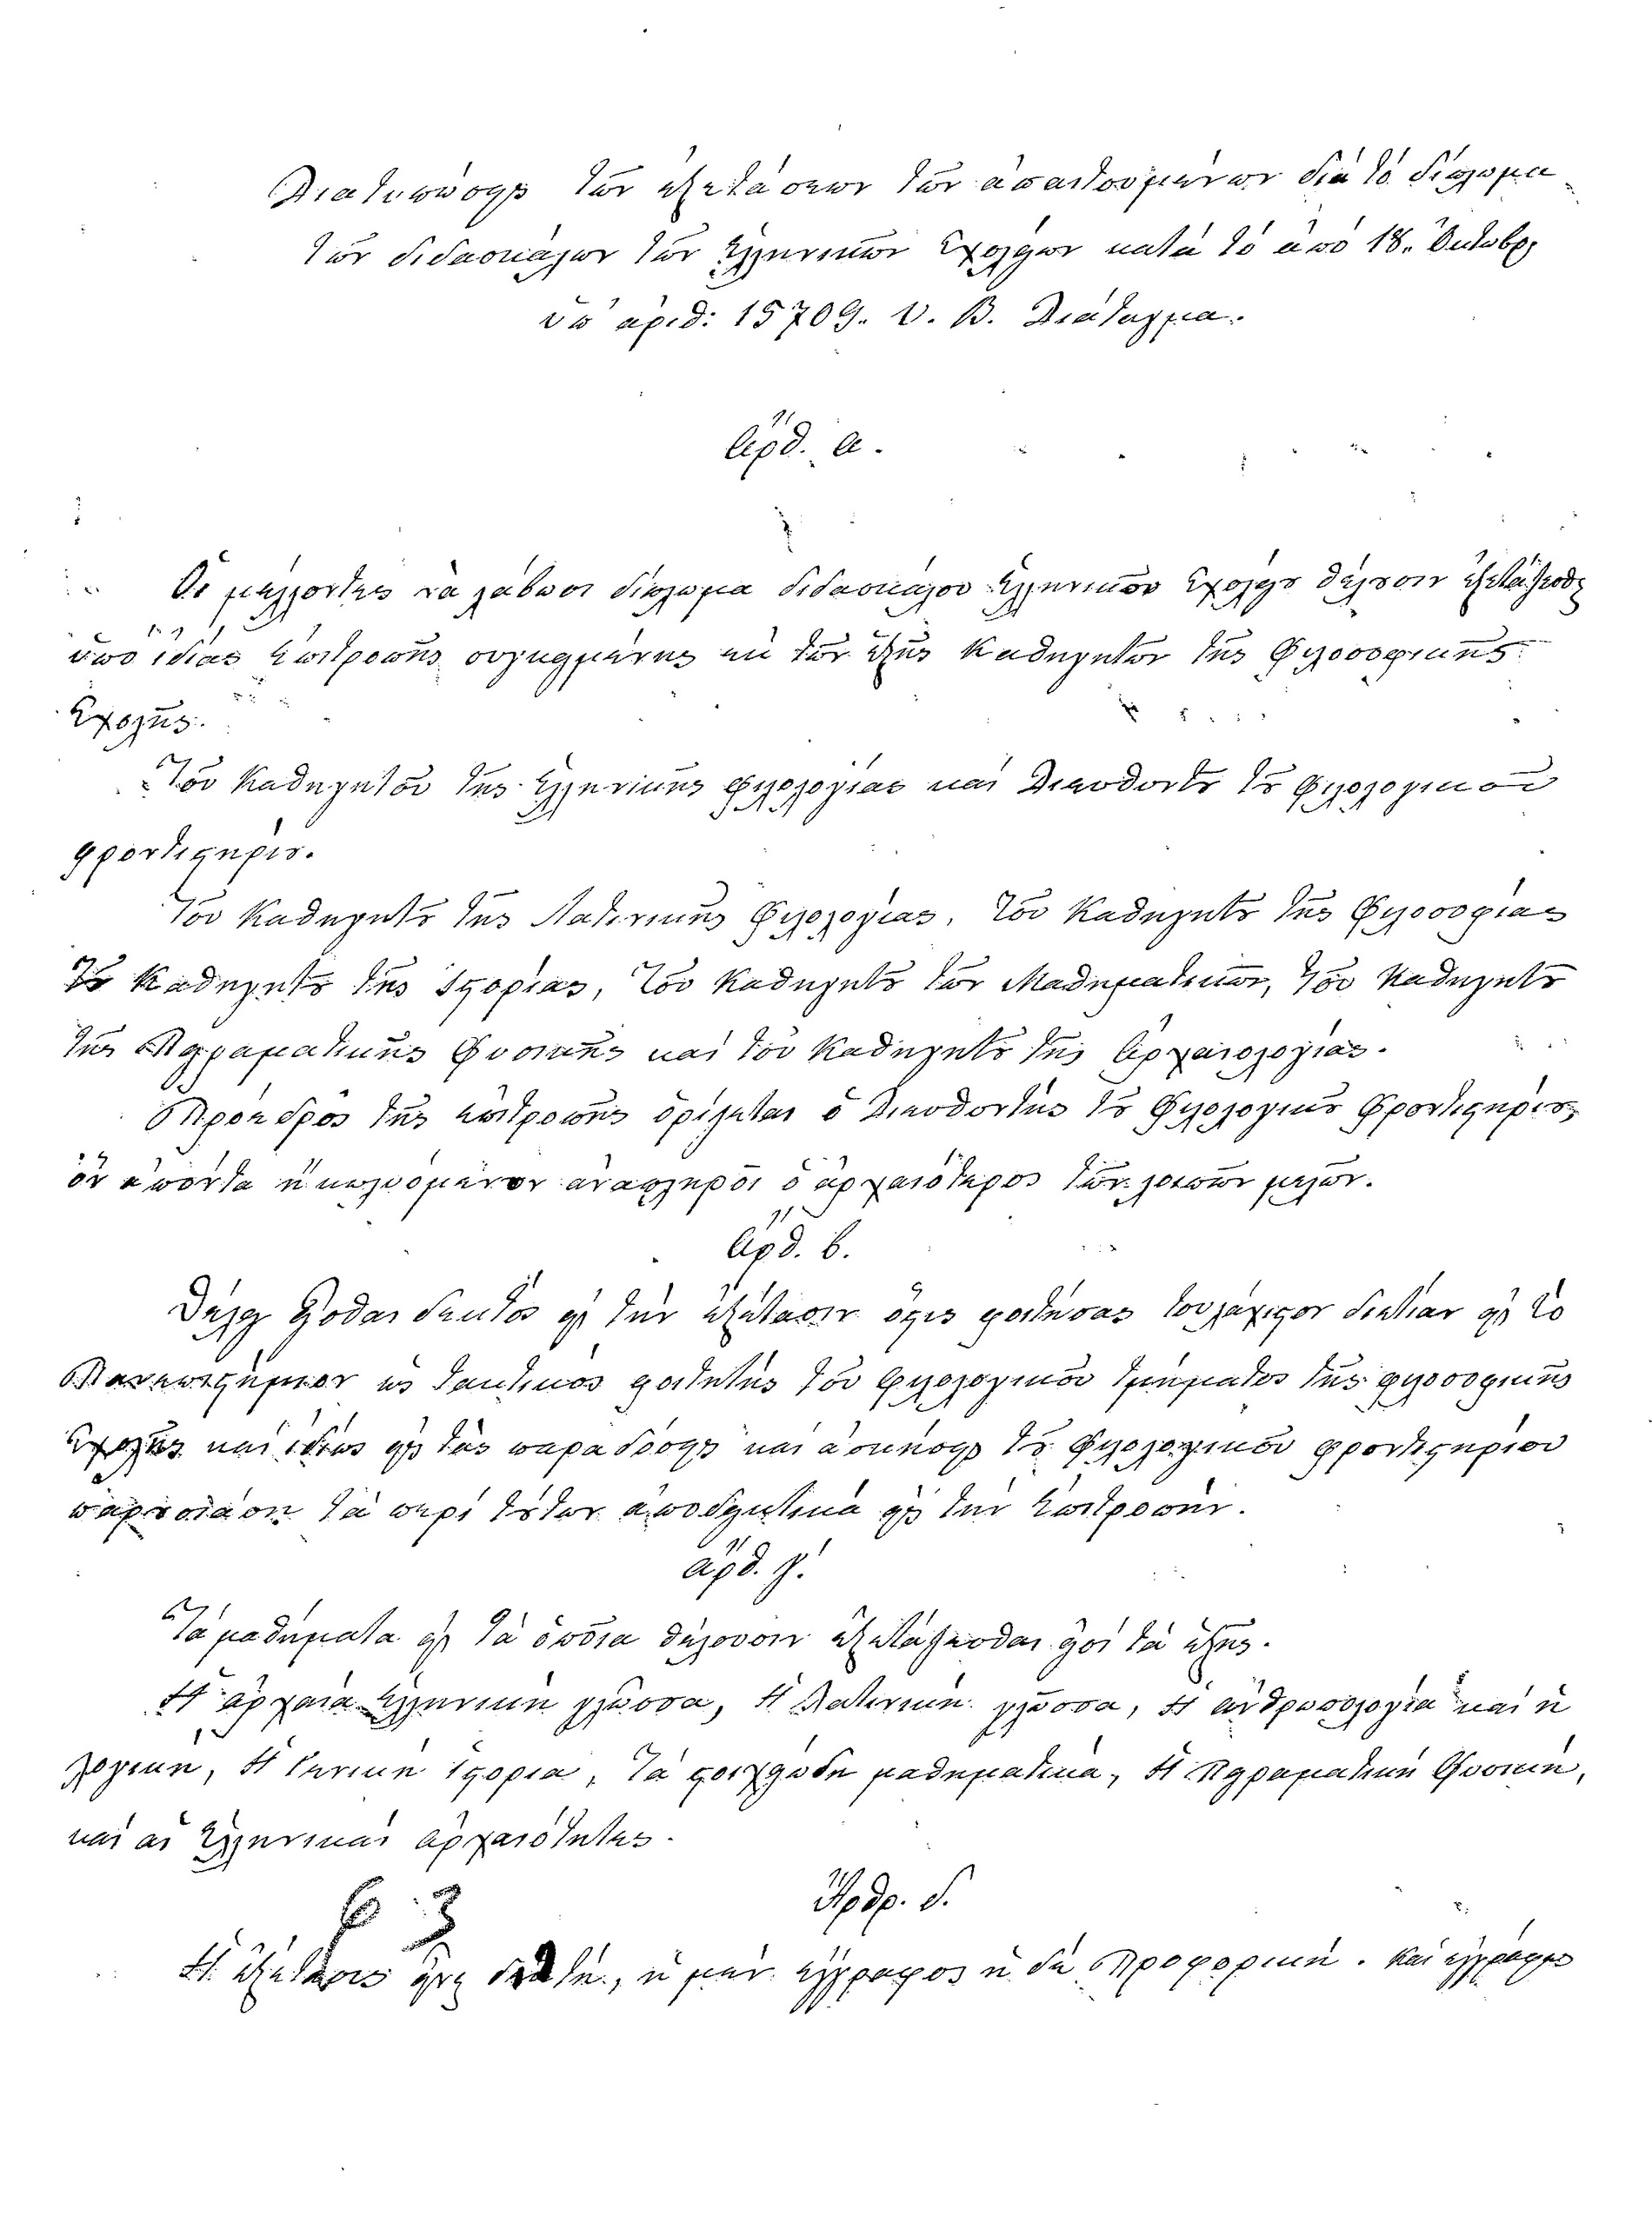 Διατυπώσεις τῶν ἐξετάσεων τῶν ἀπαιτουμένων διὰ τὸ δίπλωμα
τῶν διδασκάλων τῶν Ἑλληνικῶν Σχολείων κατὰ τὸ ἀπὸ 18. Ὀκτωβρ
ὑπ' ἀριθ: 15709. Υ. Β. Διάταγμα.
Ἄρθ. α.
Οἱ μέλλοντες νὰ λάβωσι δίπλωμα διδασκάλου Ἑλληνικοῦ Σχολείου θέλουσιν ἐξετάζεσθαι
ὑπὸ ἰδίας ἐπιτροπῆς συγκειμένης ἐκ τῶν ἑξῆς Καθηγητῶν τῆς Φιλοσοφικῆς
Σχολῆς.
Τοῦ Καθηγητοῦ τῆς Ἑλληνικῆς φιλολογίας καὶ Διευθυντοῦ τοῦ Φιλολογικοῦ
φροντιστηρίου.
Τοῦ Καθηγητοῦ τῆς Λατινικῆς Φιλολογίας, Τοῦ Καθηγητοῦ τῆς Φιλοσοφίας
Τοῦ Καθηγητοῦ τῆς Ἱστορίας, Τοῦ Καθηγητοῦ τῶν Μαθηματικῶν, Τοῦ Καθηγητοῦ
τῆς Πειραματικῆς Φυσικῆς καὶ τοῦ Καθηγητοῦ τῆς Ἀρχαιολογίας.
Πρόεδρος τῆς ἐπιτροπῆς ὁρίζεται ὁ Διευθυντὴς τοῦ Φιλολογικοῦ Φροντιστηρίου,
ὃν ἀπόντα ἢ κωλυόμενον ἀναπληροῖ ὁ ἀρχαιότερος τῶν λοιπῶν μελῶν.
Ἄρθ. β.
Θέλει εἶσθαι δεκτὸς εἰς τὴν ἐξέτασιν ὅστις φοιτήσας τοὐλάχιστον διετίαν εἰς τὸ
Πανεπιστήμιον ὡς τακτικὸς φοιτητὴς τοῦ φιλολογικοῦ τμήματος τῆς φιλοσοφικῆς
Σχολῆς καὶ ἰδίως εἰς τὰς παραδόσεις καὶ ἀσκήσεις τοῦ Φιλολογικοῦ φροντιστηρίου
παρουσιάσῃ τὰ περὶ τούτων ἀποδεικτικὰ εἰς τὴν ἐπιτροπήν.
ἄρθ. γ.
Τὰ μαθήματα εἰς τὰ ὁποῖα θέλουσιν ἐξετάζεσθαι εἰσὶ τὰ ἑξῆς.
Ἡ ἀρχαία Ἑλληνικὴ γλῶσσα, Ἡ Λατινικὴ γλῶσσα, Ἡ ἀνθρωπολογία καὶ ἡ
λογικὴ, Ἡ Γενικὴ ἱστορία, Τὰ στοιχειώδη μαθηματικὰ, Ἡ Πειραματικὴ Φυσικὴ,
καὶ αἱ Ἑλληνικαὶ ἀρχαιότητες.
Ἄρθρ. δ.
Ἡ ἐξέτασις εἶναι διττὴ, ἡ μὲν ἔγγραφος ἡ δὲ προφορική. Καὶ ἐγγράφως